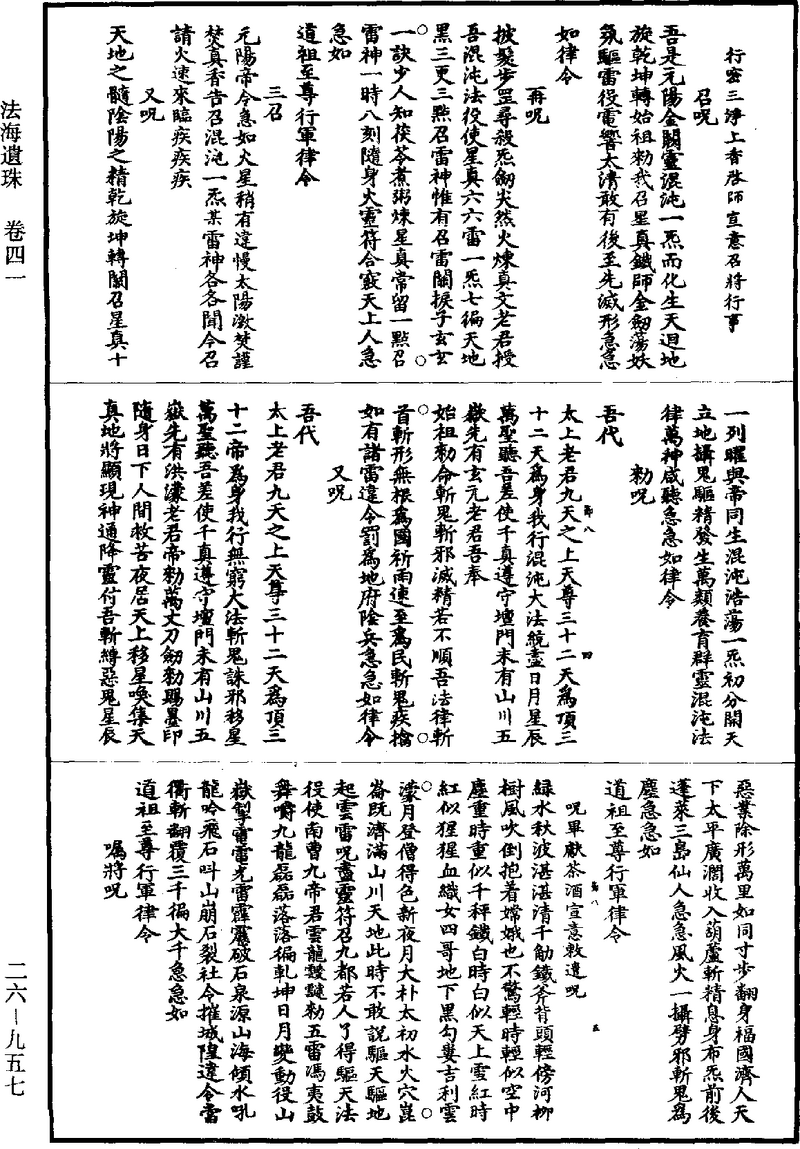 行密三淨上香啓師宣意召將行事
召呪
吾是元陽金闕靈混沌一炁而化生天迴地
旋乾坤轉始祖勑我召星真鐵師金劒蕩妖
氛驅雷役電響太清敢有後至先滅形急急
如律令
再呪
披髮步罡尋殺炁劒尖然火煉真文老君授
吾混沌法役使星真六六雷一炁七徧天地
黑三更三點召雷神惟有召雷關捩子玄玄
一訣少人知茯苓煮粥煉星真常留一點召
雷神一時八刻隨身火靈符合竅天上人急
急如
道祖至尊行軍律令
三召
元陽帝令急如火星稍有違慢太陽激焚謹
焚真香告召混沌一炁某雷神各各聞令召
請火速來臨疾疾疾
又呪
天地之髓陰陽之精乾旋坤轉關召星真十
一列曜與帝同生混沌浩蕩一炁初分開天
立地攝鬼驅精發生萬類養育群靈混沌法
律萬神咸聽急急如律令
勑呪
吾代
太上老君九天之上天尊三十二天爲頂三
十二天爲身我行混沌大法統盡日月星辰
萬聖聽吾差使千真遵守壇門未有山川五
嶽先有玄元老君吾奉
始祖勑命斬鬼斬邪滅精若不順吾法律斬
首斬形無根爲國祈雨速至爲民斬鬼疾擒
如有諸雷違令罰爲地府陰兵急急如律令
又呪
吾代
太上老君九天之上天尊三十二天爲頂三
十二帝爲身我行無窮大法斬鬼誅邪移星
萬聖聽吾差使千真遵守壇門未有山川五
嶽先有洪濛老君帝勑萬丈刀劒勑賜墨印
隨身日下人間救苦夜居天上移星喚集天
真地將顯現神通降靈付吾斬縛惡鬼星辰
惡業除形萬里如同寸步翻身福國濟人天
下太平廣濶收入葫蘆斬精息身布炁前後
蓬萊三島仙人急急風火一攝劈邪斬鬼爲
塵急急如
道祖至尊行軍律令
呪畢獻茶酒宣意敕遣呪
綠水秋波湛湛清千觔鐵斧背頭輕傍河柳
樹風吹倒抱着嫦娥也不驚輕時輕似空中
塵重時重似千秤鐵白時白似天上雪紅時
紅似猩猩血織女四哥地下黑勾婁吉利雲
濛月登僧得色新夜月大朴太初水火穴崑
崙既濟滿山川天地此時不敢說驅天驅地
起雲雷呪盡靈符召九都若人了得驅天法
役使南曹九帝君雲龍靉靆勑五雷馮夷鼓
舞嚼九龍磊磊落落徧乹坤日月變動役山
嶽掣電雷光雷霹靂破石泉源山海傾水吼
龍吟飛石叫山崩石裂社令摧城隍違令當
衝斬翻覆三千徧大千急急如
道祖至尊行軍律令
囑將呪
法海遺珠 卷四一
二六—九五七